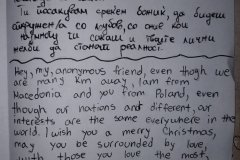 Ти посакувам среќен божиќ, да бидеш
со љубов, со оние кои
најмногу ги сакаш и твоите
желби да станат реалност.
Hey, my, anonymous friend, even though we
are many km away, I am from
Macedonia and you from Poland, even
though our nations and different, our
interests are the same everywhere in the
world. I wish you a merry Christmas,
may you be surrounded by love,
with those you love the most